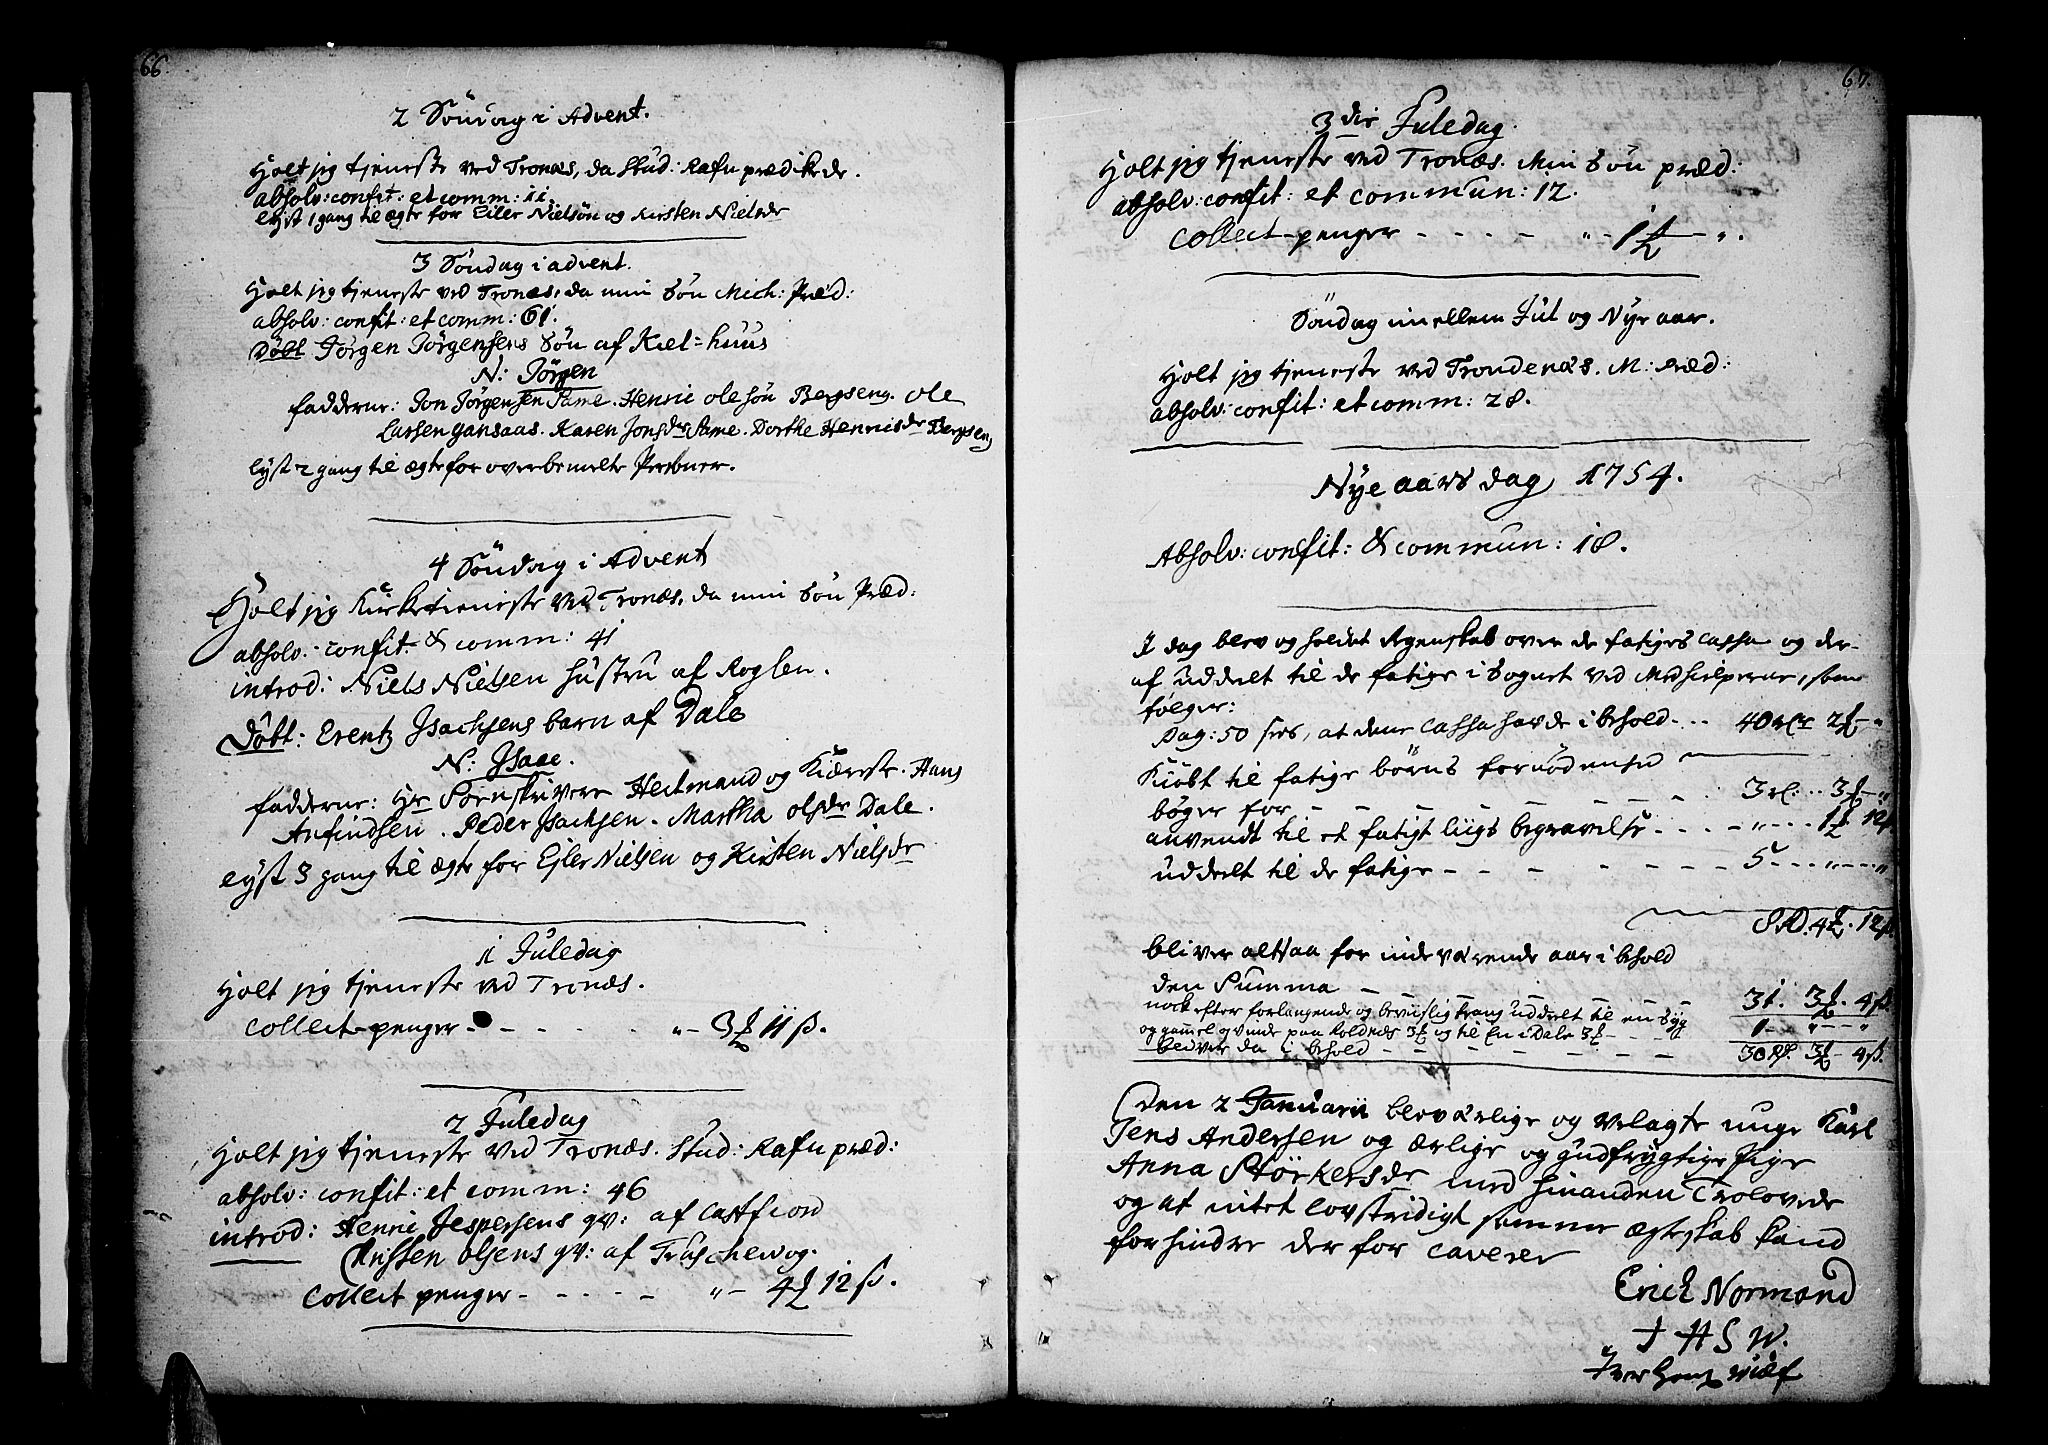 66.
2 Søndag i Advent.
Holt jeg tjeneste ved Tronæs, da Stud: Rafn prædikede.
absolv: confit: et comm: 11.
lyst 1 gang til ægte for Eiler Nielsøn og Kirsten Nielsdr
3 Søndag i advent.
Holt jeg tjeneste ved Tronæs, da min Søn Mich: Præd:
absolv: confit: et comm: 61.
Døbt Jørgen Jørgensens Søn af Kiel=huus
N: Jørgen
fadderne: Jon Jørgensen Same. Henric olesøn Bergseng. ole
Larsen gansaas. Karen Jonsdr Same. Dorthe Henricsdr Bergseng
lyst 2 gang til ægte for overbemelte Persouner.
4 Søndag i Advent
Holt jeg Kirketieneste ved Tronæs, da min Søn Præd:
absolv: confit: & comm: 41
introd: Niels Nielsen hustru af Roglen.
Døbt: Erentz Jsachsens barn af Dale
N: Jsaac.
fadderne: Hr Sorenskrivere Heitmand og Kiæreste. Hans
Anfindsen. Peder Jsachsen. Martha olsdr Dale.
lyst 3 gang til ægte for Ejler Nielsen og Kirsten Nielsdr
1 Juledag
Holt jeg tjeneste ved Tronæs.
Collect-penger - - - - - " - 3 11 ß.
2 Juledag
Holt jeg tjeneste ved Tronæs. Stud: Rafn præd:
absolv: confit: et comm: 46
introd: Henric Jespersens qv: af Castfiord
Olsens qv: af
Collect penger - - - - - " - 4 12 ß.
67.
3die Juledag.
Holt jeg tjeneste ved Tronæs. Min Søn præd:
absolv: confit: et commun: 12.
Collect-penger - - - - - " - 1 - ".
Søndag imellem Jul og Nye aar.
Holt jeg tjeneste ved Trondenæs. M: Præd:
absolv: confit: et comm: 28.
Nye aars dag 1754.
Absolv: confit: & commun: 18.
I dag blev og holdet Regenskab over de fatiges Cassa og der-
af uddeelt til de fatige i Sognet ved Medhielperne, som
følger:
Pag: 50 sees, at denne Cassa havde i behold - - - 40 rdr 2 - "
Kiøbt til fatige børns fornødenhed
bøger for - - - - - - - - 3 rd: - - 3 - "
anvendt til et fatigt liigs begravelse - - - - " - - - 1 12 ß
uddeelt til de fatige - - - - - - - - 5 - - - " - - - "
8 RD. 4. 12 ß.
bliver altsaa for indeværende aar i behold
den Summa - - - - - - 31. 3. 4 ß
nock efter forlangende og beviislig trang uddeelt til en Syg
og gammel qvinde paa Roldnæs 3 og til En i Dale 3 - - - 1 - - " - - "
bliver da i behold - - - - - - - 30 Rd. 3 - 4 ß.
Den 2 Januarii blev ærlige og velagte unge Karl
Jens Andersen og ærlige og gudfrygtige Pige
Anna Størkersdr med hinanden Trolovede
og at intet lovstridigt samme ægteskab kand
forhindre der for caverer
Erich Normand
J H S W.